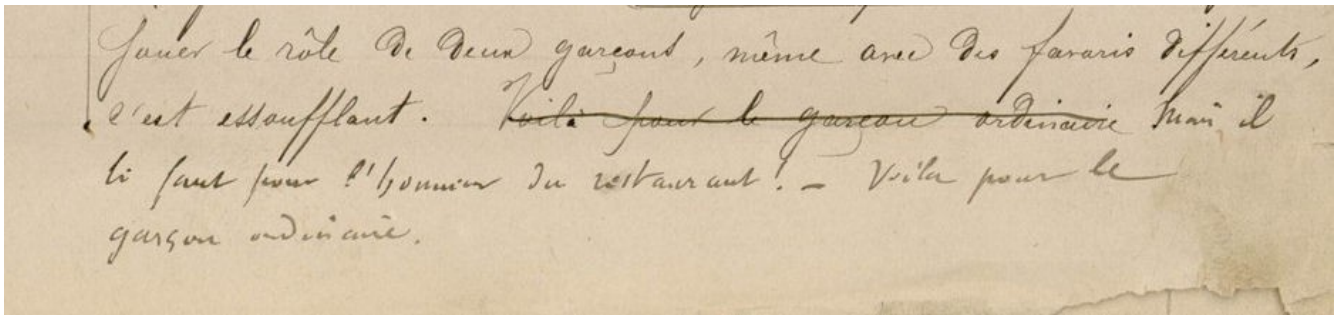 Jouer le rôle de deux garçons, même avec des favoris différents,
c'est essoufflant. Voilà pour le garçon ordinaire Mais il
le faut pour l'honneur du restaurant ! – Voila pour le
garçon ordinaire.